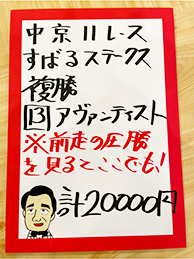 中京11レース
すばるステークス
複勝
13 アヴァンティスト
※前走の圧勝
を見るとここでも!
計20000円